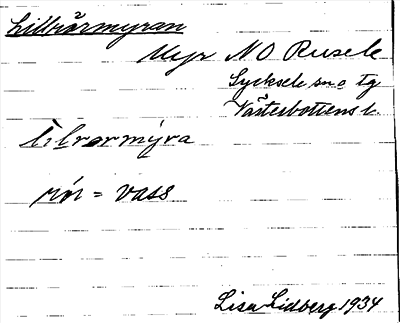 Lillrörmyran
Myr NO Rusele
Lycksele sn o tg
Västerbottens l.
rör = vass
Lisa Lidberg 1934